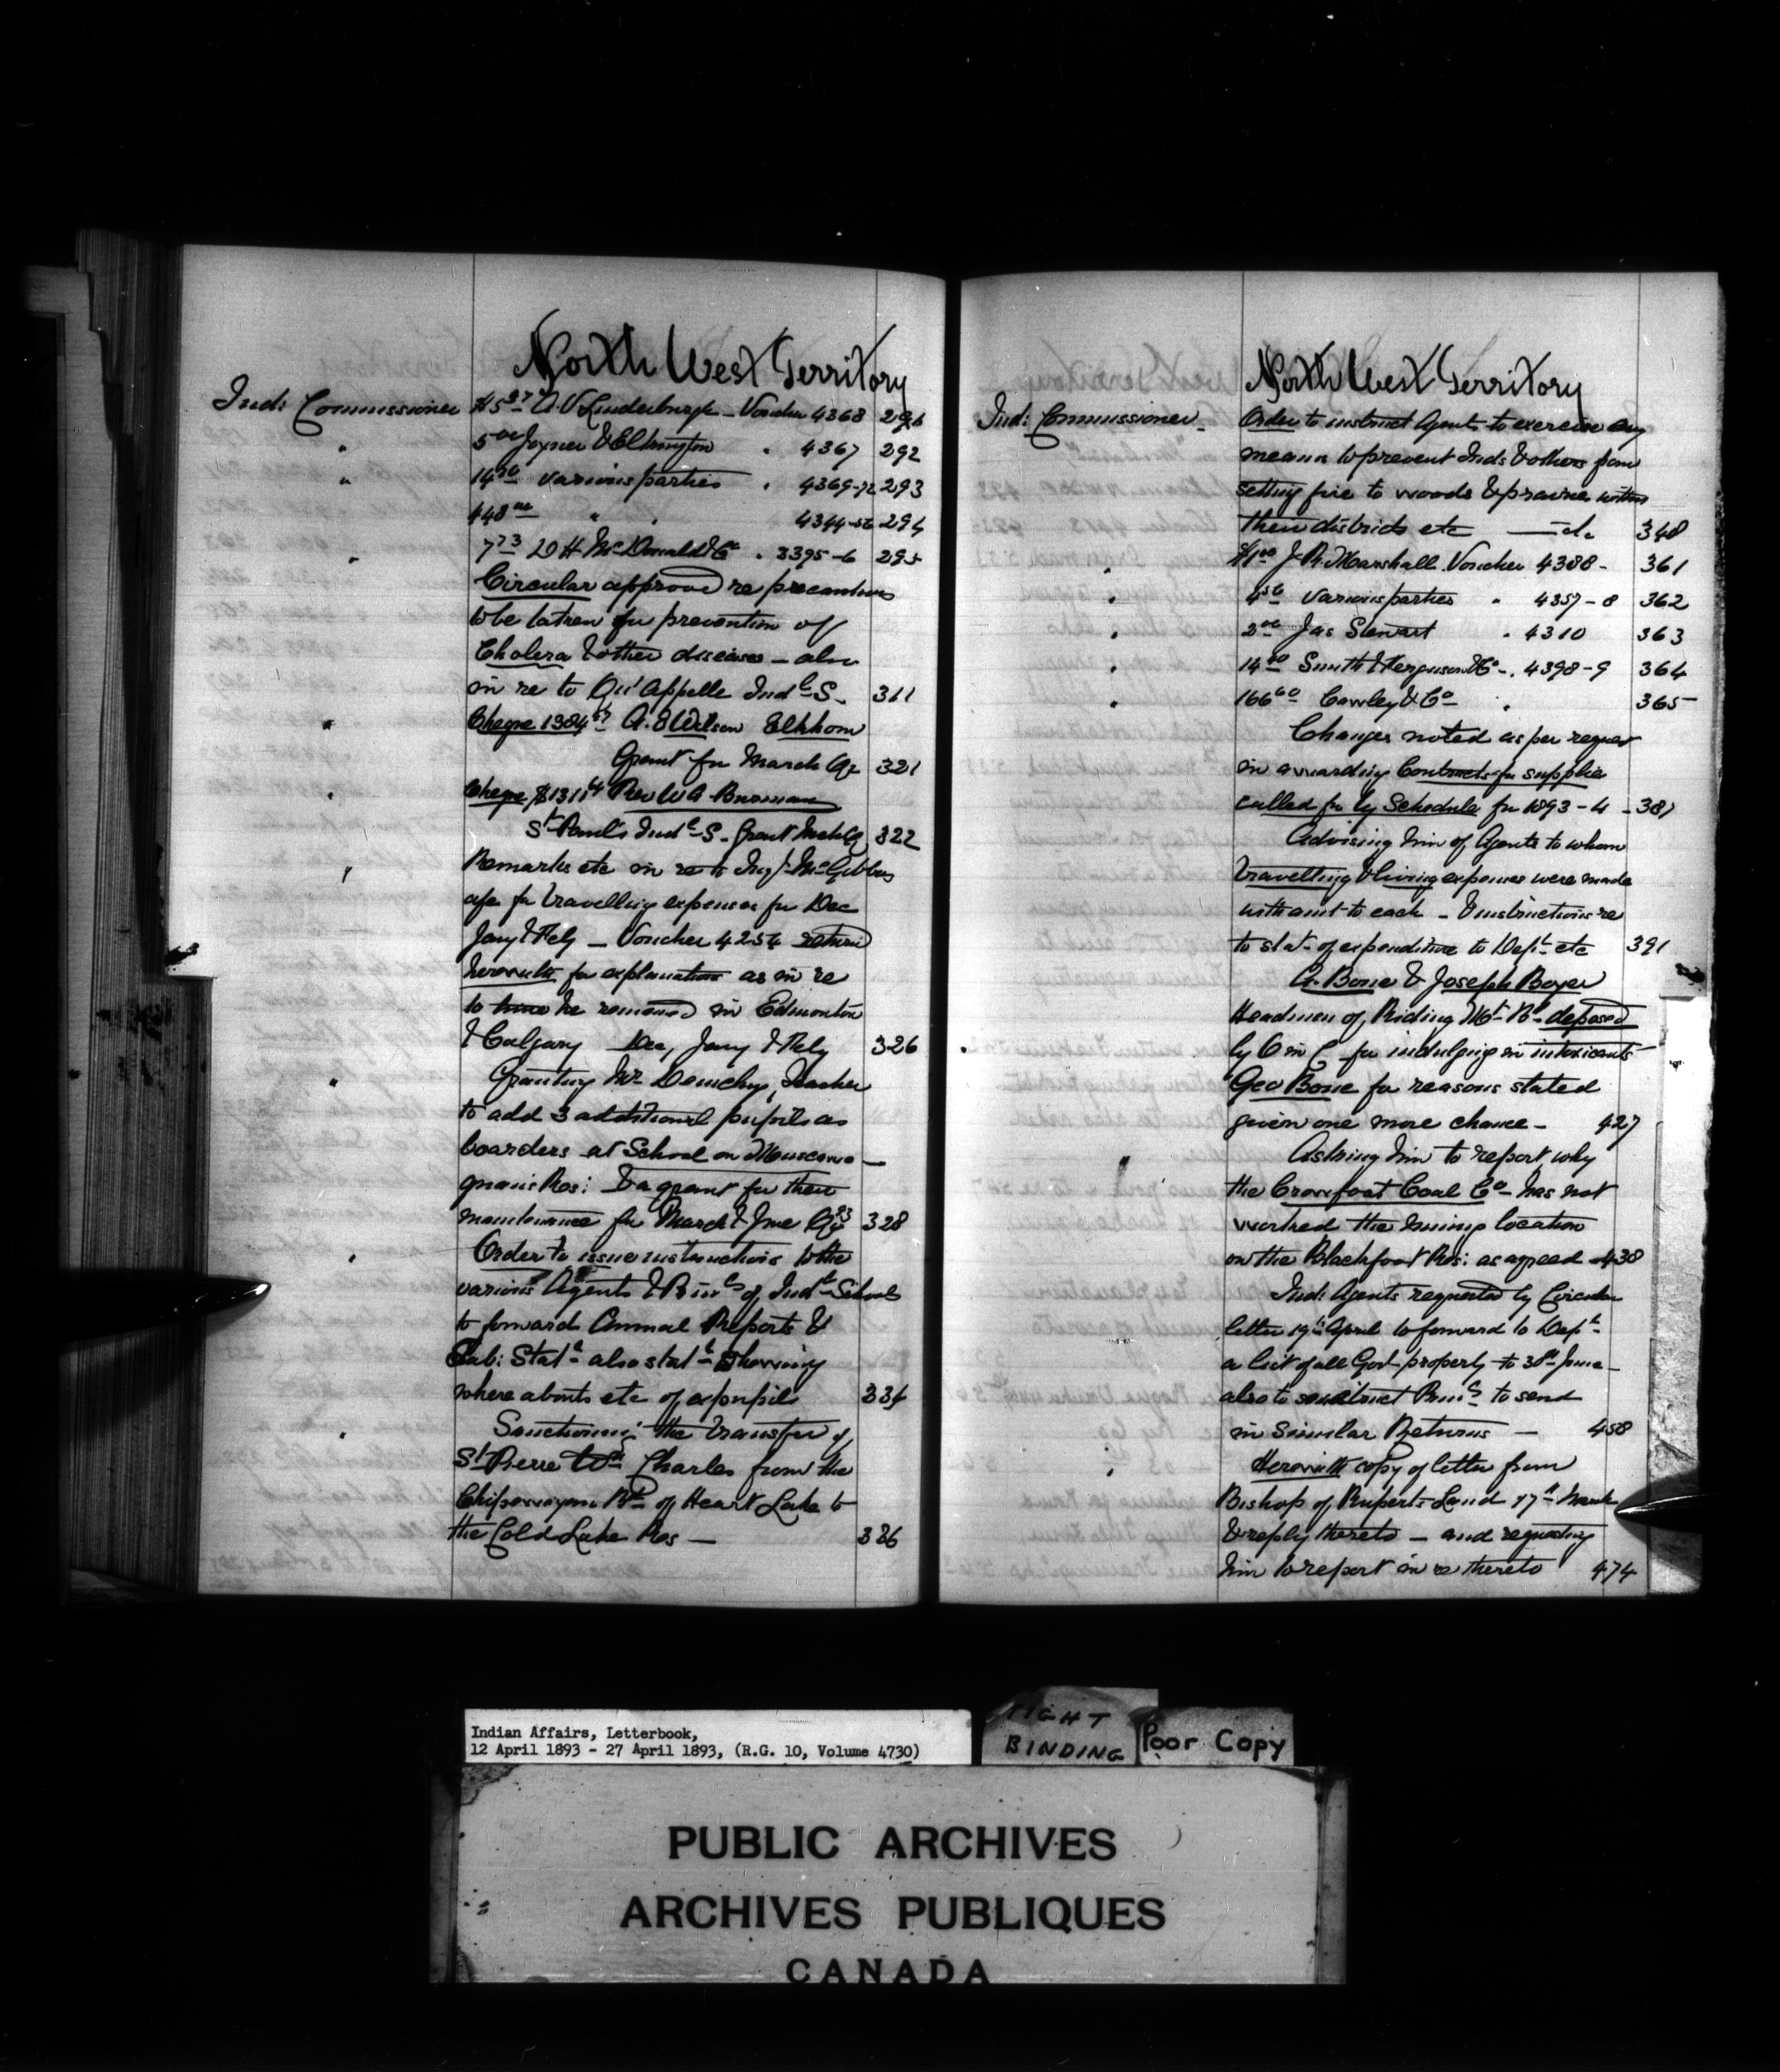 North West Territory
Ind: Commissioner $5.87 A.V. Linderburgh - Voucher 4368 291
" 5.00 Joyner & Elkington " 4367 292
" 14.50 various parties " 4369-72 293
448.00 " " 4344-56 294
" 7.73 D H McDonald & Co " 3395-6 295
Circular approved re precautions
to be taken for prevention of
Cholera & other diseases - also
in re to Qu'Appelle Indl S. 311
" Cheque 1384.67 A. E Wilson Elkhorn
Grant for March Qr 321
" Cheque $1311.64 Rev W A Burman
St Paul's Indl S. Grant Mch Qr 322
" Remarks etc in re to Insp. McGibbon
a/c for travelling expenses for Dec
Jany & Feby - Voucher 4254 returned
herewith for explanation as in re
to time he remained in Edmonton
& Calgary Dec, Jany & Feby 326
" Granting Mr Dennehy, Teacher
to add 3 additional pupils as
boarders at School on Muscowe-
quan's Res: & a grant for their
maintenance for March & June Qr 93 328
" Order to issue instructions to the
various Agents & Prin.ls of Indl Schools
to forward Annual Reports &
Tab: Stat.t also stat.t showing
where abouts etc of ex pupils 334
" Sanctioning the transfer of
St Pierre Wm Charles from the
Chipewayan Bd of Heart Lake to
the Cold Lake Res - 336
North West Territory
Ind: Commissioner - Order to instruct Agents to exercise any
means to prevent Inds & others from
setting fire to woods & prairie within
their districts etc 348
" $1.00 J. R. Marshall Voucher 4388 - 361
" 4.56 various parties " 4357-8 362
" 2.00 Jas Stewart " 4310 363
" 14.40 Smith & Ferguson & Co - " 4398-9 364
" 166.60 Cowley & Co " 365
Changes noted as per request
in awarding Contracts for supplies
called for by Schedule for 1893-4 - 387
Advising him of Agents to whom
travelling & living expenses were made
with amt to each - & instructions re
to stat. of expenditure to Dept etc 391
A. Bone & Joseph Boyer
Headmen of Riding Mt Bd deposed
by O in C for indulging in intoxicants -
Geo Bone for reasons stated
given one more chance - 427
" Asking him to report why
the Crowfoot Coal Co has not
worked the mining location
on the Blackfoot Res: as agreed - 438
Ind: Agents requested by Circular
letter 19th April to forward to Dept
a list of all Govt property to 30th June -
also to instruct Prin.ls to send
in similar Returns - 458
" Herewith copy of letter from
Bishop of Ruperts Land 17th March
& reply thereto - and requesting
him to report in re thereto 474
Indian Affairs, Letterbook,
12 April 1893 - 27 April 1893, (R.G. 10, Volume 4730)
TIGHT
BINDING
Poor Copy
PUBLIC ARCHIVES
ARCHIVES PUBLIQUES
CANADA